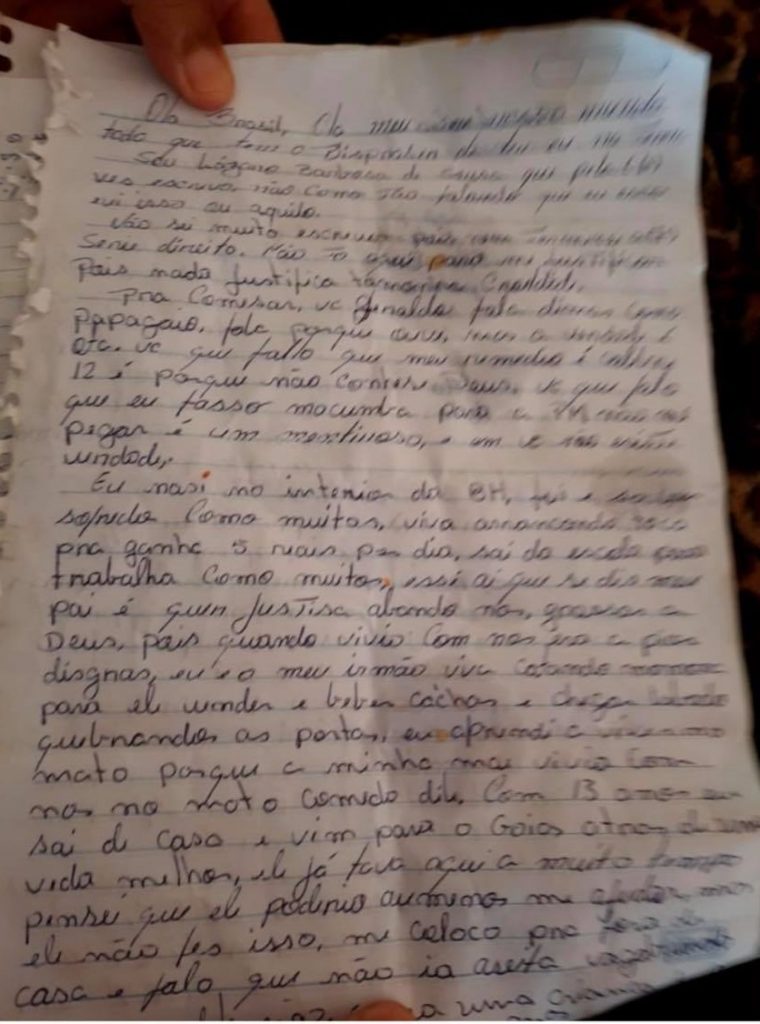 Ola Brasil, Ola meu
todo que tem o
Sou Lázaro Barbosa de Sousa que pela
ves escrevo, não como tão falando que eu
evi isso ou aquilo.
Não sei muito escrever pois
Serie direito. Não to aqui para me justificar
Pois nada justifica tamanha
Pra Comesar, vc Ginaldo fala demas como
papagaio, fala porque ouve, mas a
vc que fallo que meu remedio é calibre
12 é porque não conhese Deus, vc que falo
que eu fasso macumba para a PM não me
pegar é um mentiroso, e um vc
verdade,
Eu nasi no interior da BH, fui e
sofrido como muitos, viva arrancando toco
pra ganha 5 reais por dia, sai da escola para
trabalha como muitos, essi ai que se dis meu
pai é quen justisa abando nos, grassas a
Deus, pois quando vivio com nos era a pior
disgras, eu e o meu irmão viva catando
para ele vender e beber cachas e chegar
quebrandos as portas, eu aprendi a viver no
mato porque a minha mae vivio com
nos no mato comedo dele. Com 13 anos eu
sai di casa e vim para o Goias atras de uma
vida melhor, ele já tava aqui a muito tempo
pensei que ele poderio aumenos me ajudar, mas
ele não fes isso, me coloco pra fora de
casa e falo que não ia aseita vagabundo
uma criança